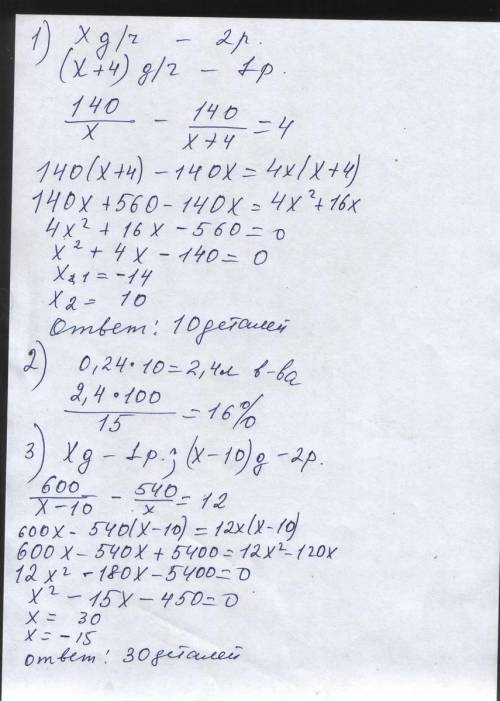 1) х д/ч – 2р.
(х+4) д/ч – 1р.
140/х – 140/(х+4) = 4
140(х+4) – 140х = 4х(х+4)
140х + 560 – 140х = 4х² + 16х
4х² + 16х – 560 = 0
х² + 4х – 140 = 0
х₁ = –14
х₂ = 10
Ответ: 10 деталей
2) 0,24 · 10 = 2,4л в-ва
2,4 · 100/15 = 16%
3) Хд – 1р.; (х–10)д – 2р.
600/(х–10) – 540/х = 12
600х – 540(х–10) = 12х(х–10)
600х – 540х + 5400 = 12х² – 120х
12х² – 180х – 5400 = 0
х² – 15х – 450 = 0
х = 30
х = –15
ответ: 30 деталей